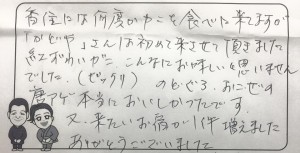 香住には何度かカニを食べに来てますが
「かどや」さんは初めて来させて頂きました
紅ずわいがこんなにお味しいと思いません
でした。(ビックリ)のどぐろ、おこぜの
唐アゲ本当においしかったです。
又、来たいお宿が1件増えました
ありがとうございました